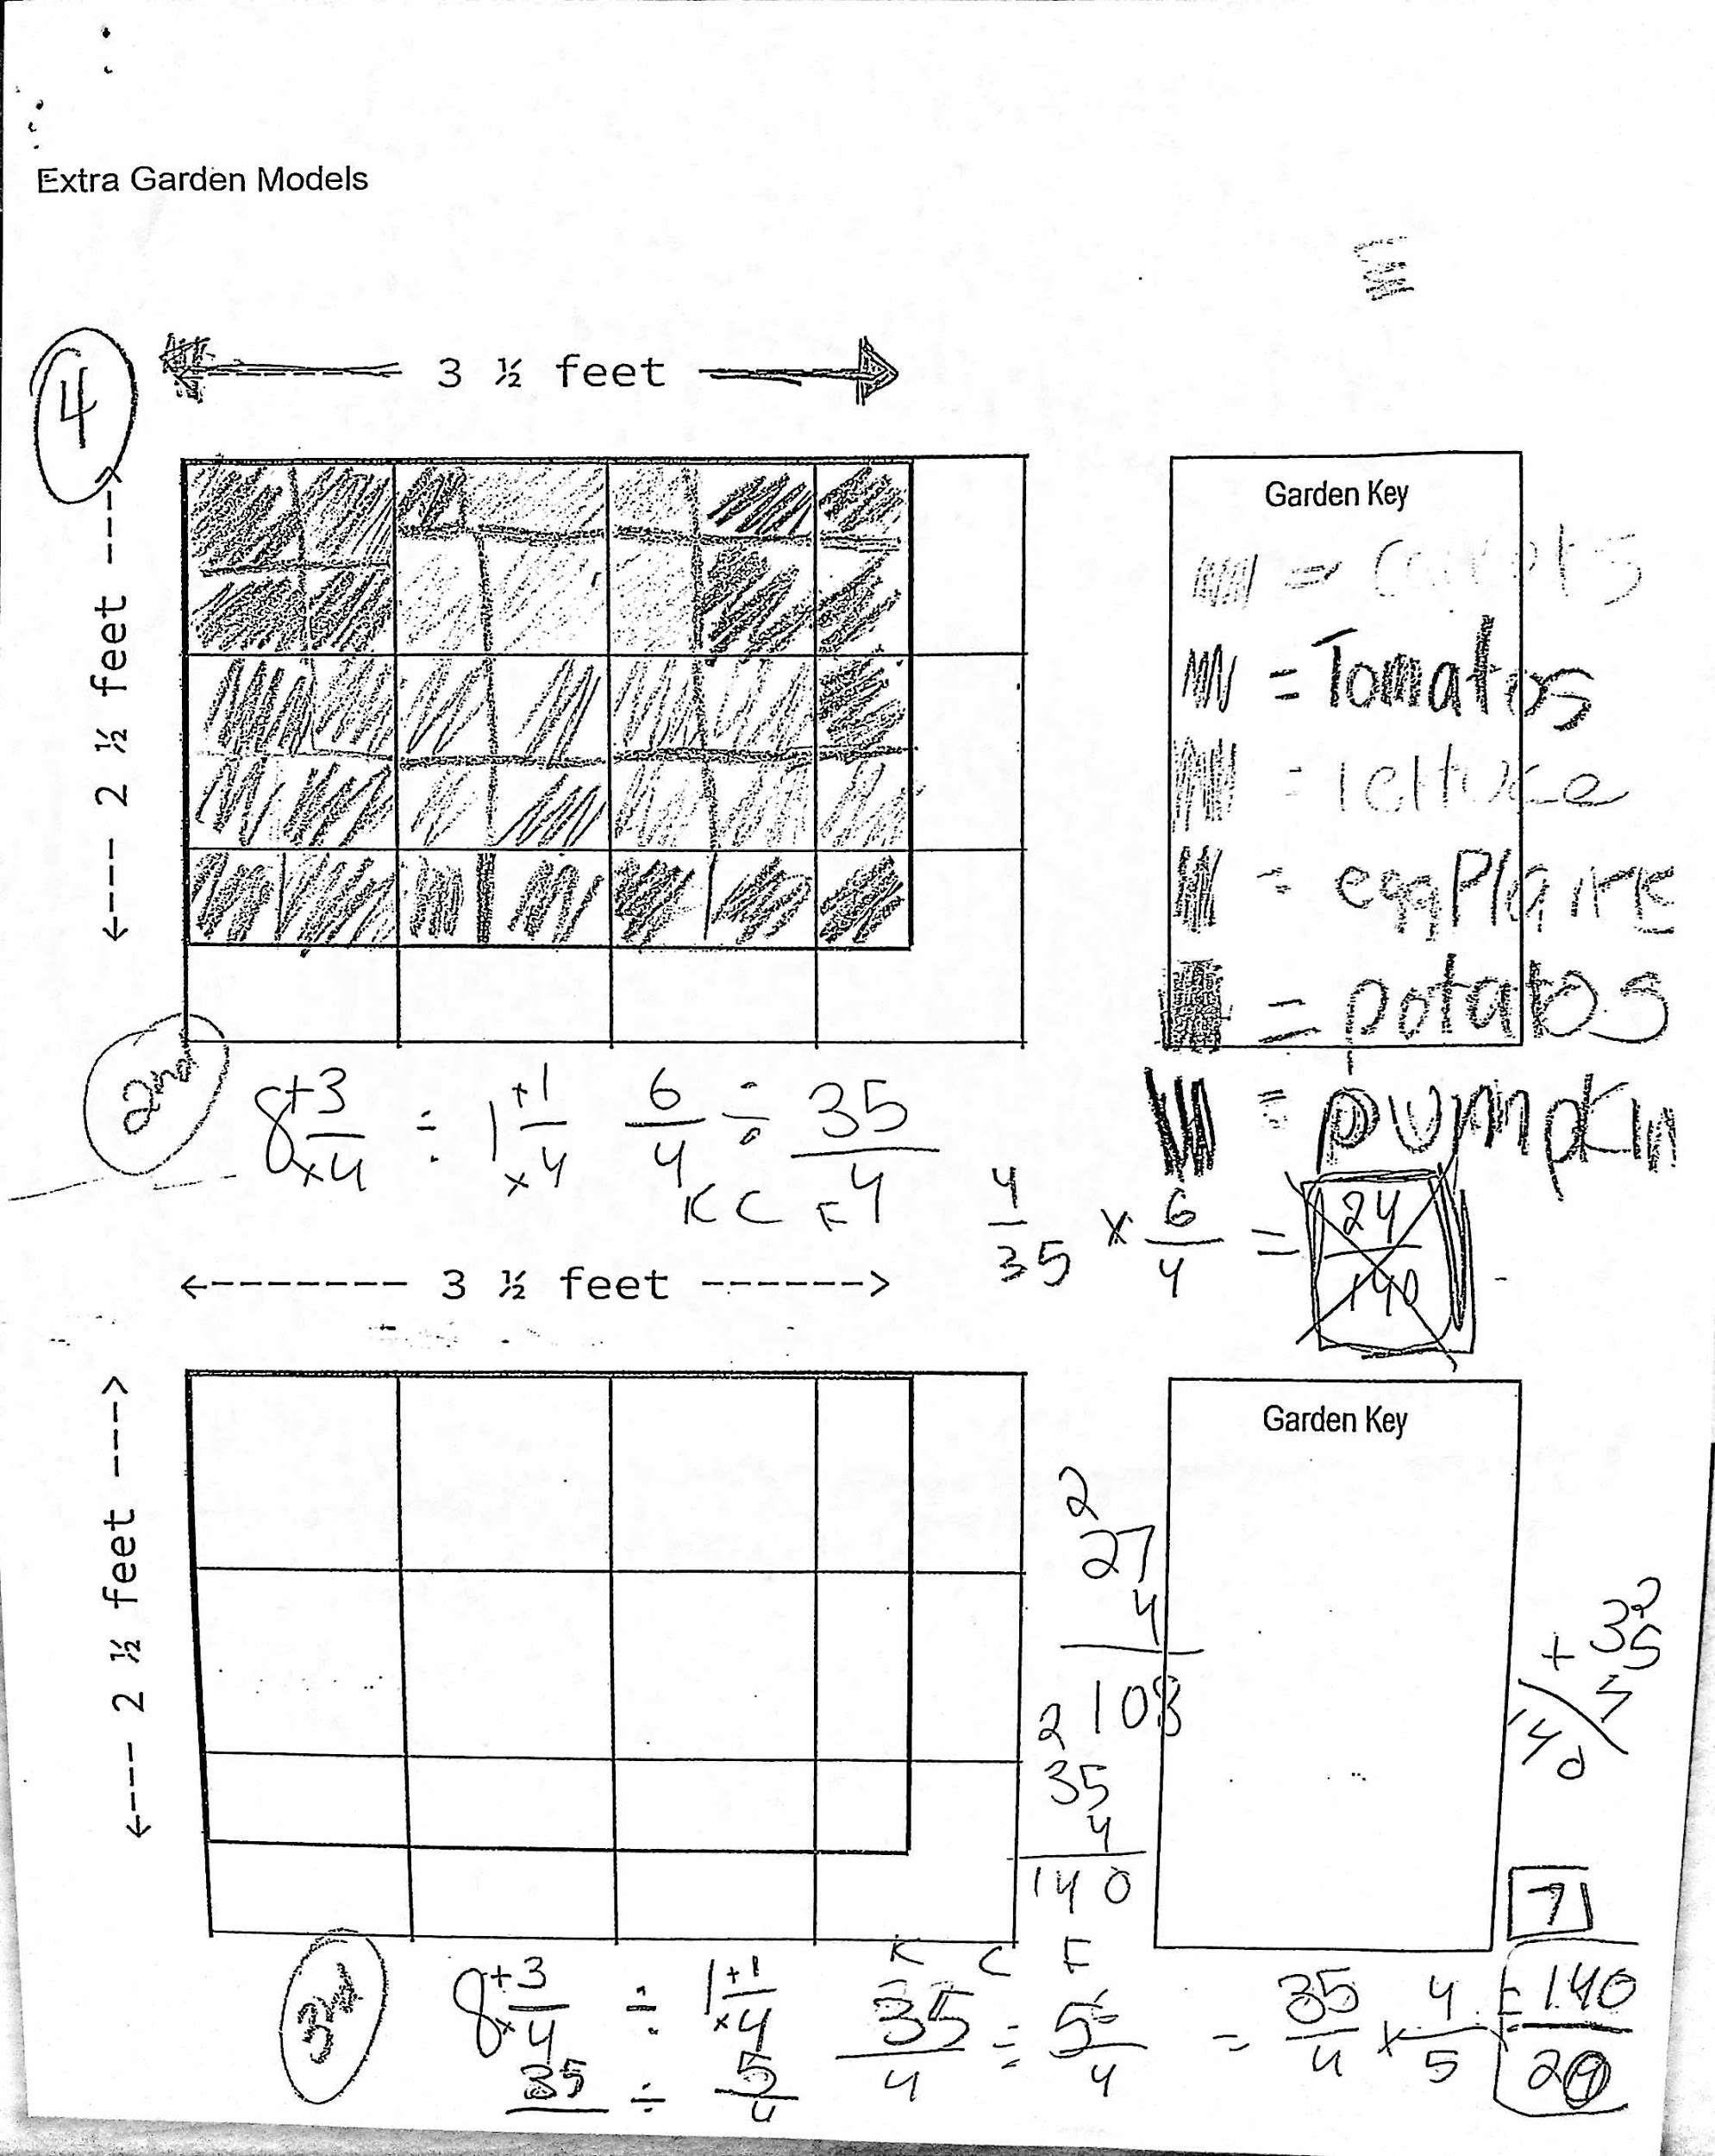 Extra Garden Models
4
3 ½ feet
2 ½ feet
Garden Key
= Carrots
= Tomatos
= lettuce
=
= potatos
= pumpkin
2nd
8 +3/×4 ÷ 1 +1/×4 6/4 ÷ 35/4
K C F
4/35 × 6/4 = 24/140
3 ½ feet
2 ½ feet
Garden Key
2
27
4
108
2
35
4
140
2
+ 35
140
7
3rd
8 +3/×4 ÷ 1 +1/×4
35 ÷ 5/4
K C F
35/4 ÷ 5/4 = 35/4 × 4/5 = 140/20